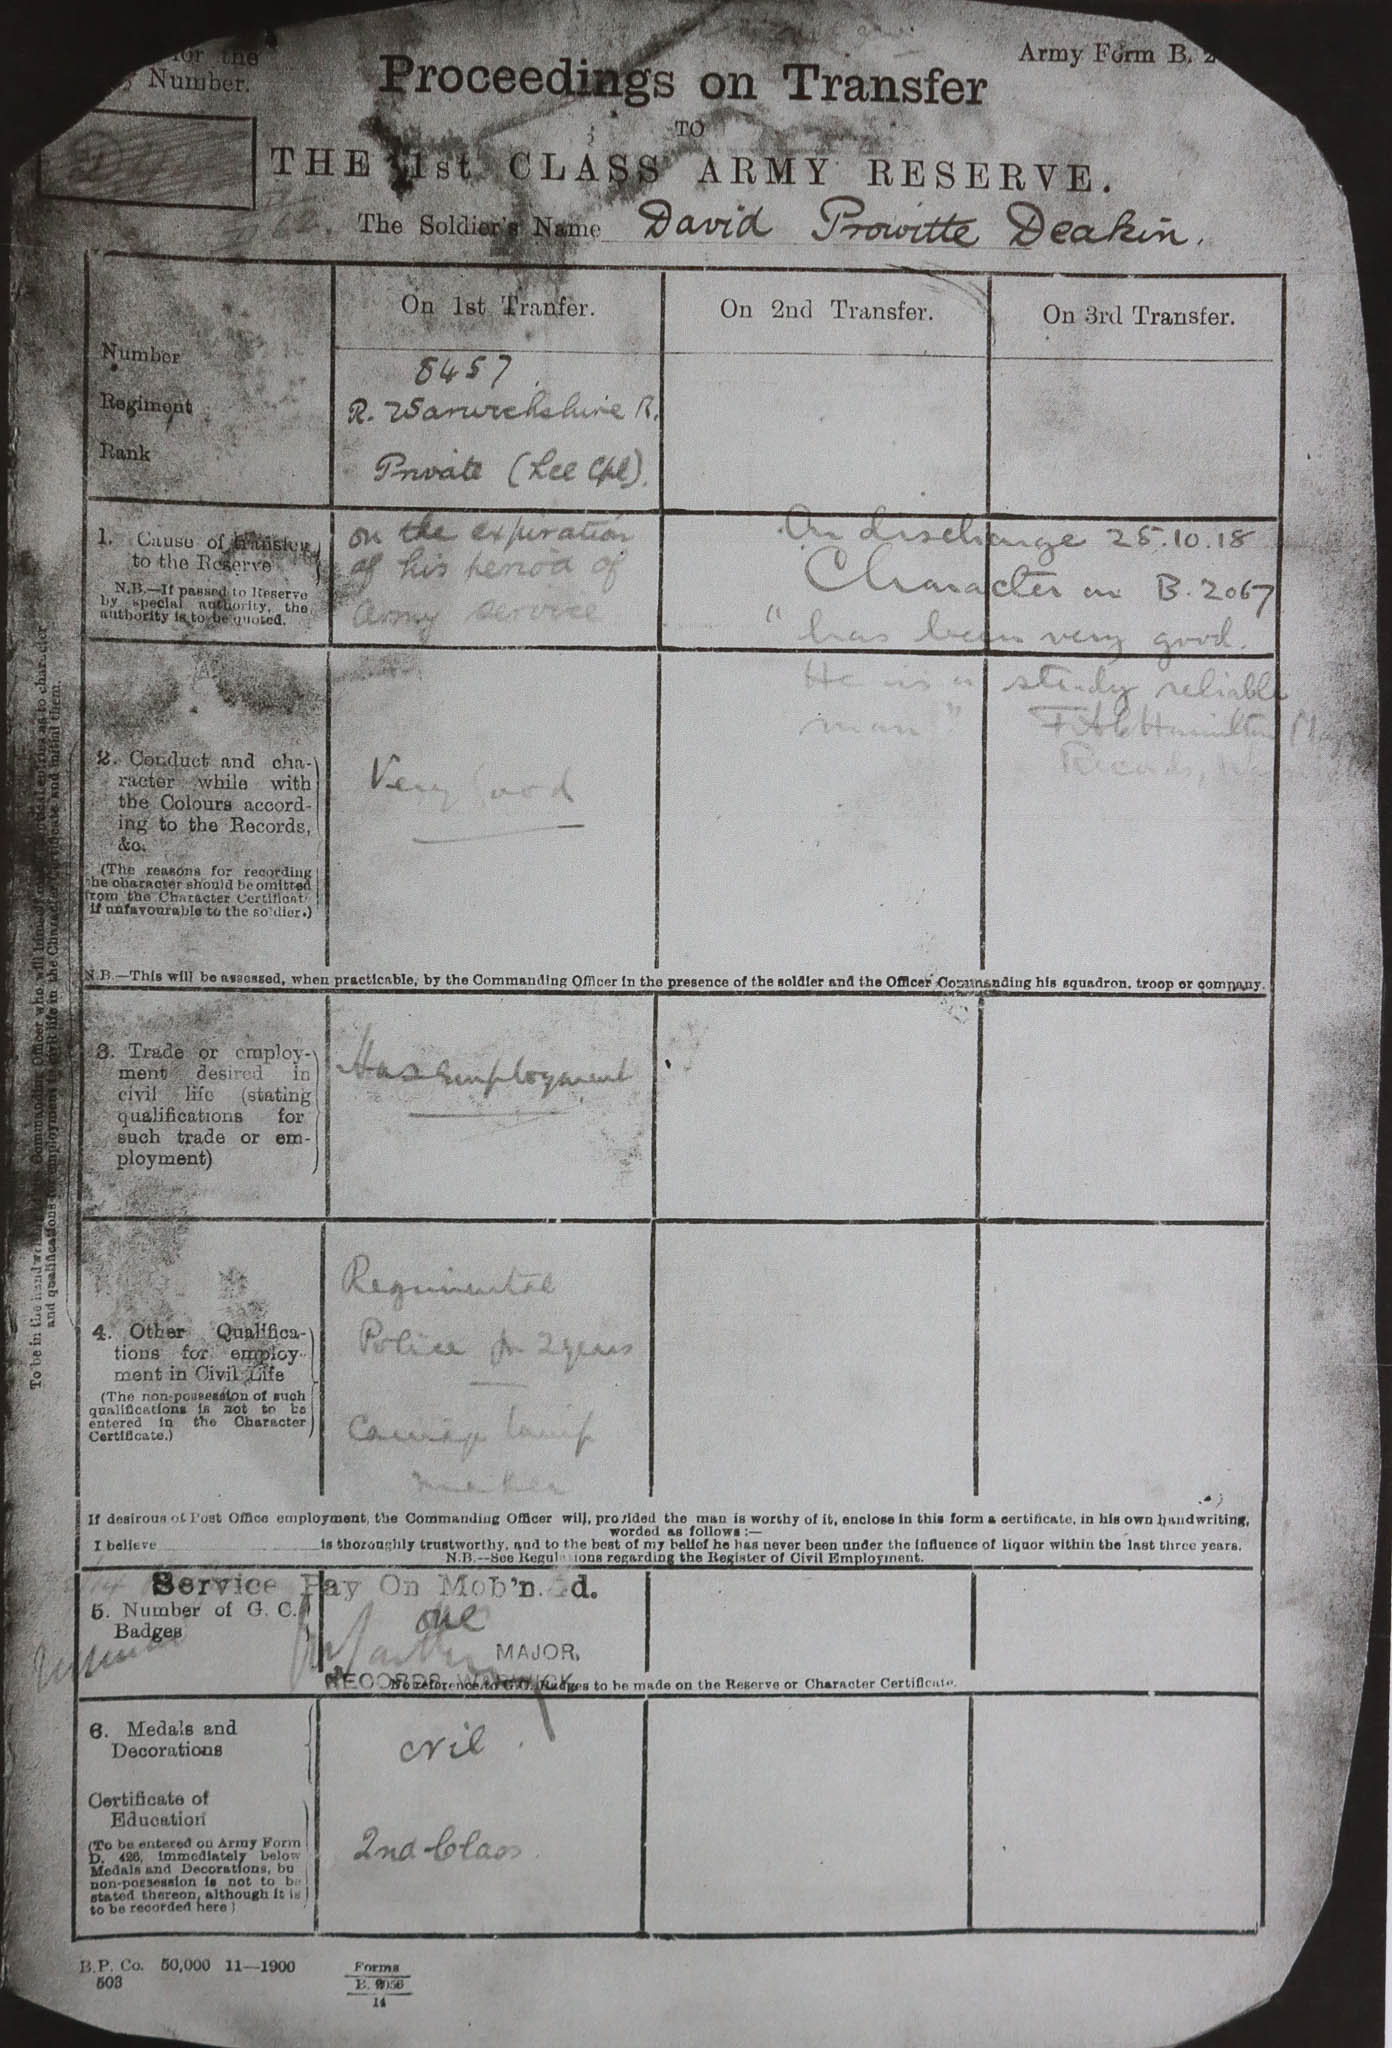 for the
Number.
Army Form B. 2
Proceedings on Transfer
TO
THE 1st CLASS ARMY RESERVE.
The Soldier's Name David Prowitte Deakin.
On 1st Tranfer.
On 2nd Transfer.
On 3rd Transfer.
Number
8457
Regiment
R. Warwickshire R.
Rank
Private (Lce Cpl).
1. Cause of transfer
to the Reserve
N.B.—If passed to Reserve
by special authority, the
authority is to be quoted.
on the expiration
of his period of
army service
On discharge 25.10.18
Character on B. 2067
"has been very good.
He is a steady reliable
man"
Hamilton
Records,
2. Conduct and cha-
racter while with
the Colours accord-
ing to the Records,
&c.
(The reasons for recording
the character should be omitted
from the Character Certificate
if unfavourable to the soldier.)
Very Good
N.B.—This will be assessed, when practicable, by the Commanding Officer in the presence of the soldier and the Officer Commanding his squadron, troop or company.
3. Trade or employ-
ment desired in
civil life (stating
qualifications for
such trade or em-
ployment)
Has employment
4. Other Qualifica-
tions for employ-
ment in Civil Life
(The non-possession of such
qualifications is not to be
entered in the Character
Certificate.)
Regimental
Police for 2 years
Carriage lamp
maker
To be in the handwriting Commanding Officer who will himself entries as to character
and qualifications for employment in civil life in the Character Certificate and initial them.
If desirous of Post Office employment, the Commanding Officer will, provided the man is worthy of it, enclose in this form a certificate, in his own handwriting,
worded as follows :—
I believe is thoroughly trustworthy, and to the best of my belief he has never been under the influence of liquor within the last three years.
N.B.—See Regulations regarding the Register of Civil Employment.
Service Pay On Mob'n. d.
5. Number of G. C.
Badges
one
MAJOR,
RECORDS WARWICK
No reference to G.C. Badges to be made on the Reserve or Character Certificate.
6. Medals and
Decorations
Nil.
Certificate of
Education
(To be entered on Army Form
D. 426, immediately below
Medals and Decorations, bu
non-possession is not to be
stated thereon, although it is
to be recorded here)
2nd Class.
B.P. Co. 50,000 11—1900
503
Forms
B. 2056
14